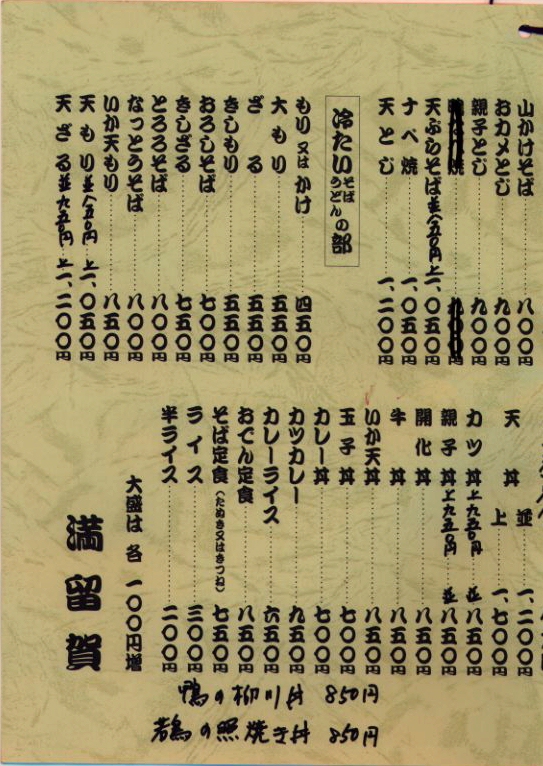 山かけそば 八〇〇円
おカメとじ 九〇〇円
親子とじ 九〇〇円
天ぷらそば 並八五〇円 上一、〇五〇円
ナベ焼 一、〇五〇円
天とじ 一、二〇〇円
冷たいそばうどんの部
もり又はかけ 四五〇円
大もり 五五〇円
ざる 五五〇円
きしもり 五五〇円
おろしそば 七〇〇円
きしざる 七五〇円
とろろそば 八〇〇円
なっとうそば 八〇〇円
いか天もり 八五〇円
天もり 並八五〇円 上一、〇五〇円
天ざる 並九五〇円 上一、二〇〇円
天丼 並 一、二〇〇円
上 一、七〇〇円
カツ丼 上九五〇円 並 八五〇円
親子丼 上九五〇円 並 八五〇円
開化丼 八五〇円
牛丼 八五〇円
いか天丼 八五〇円
玉子丼 七〇〇円
カレー丼 七〇〇円
カツカレー 九五〇円
カレーライス 六五〇円
おでん定食 八五〇円
そば定食(たぬき又はきつね) 七五〇円
ライス 三〇〇円
半ライス 二〇〇円
大盛は各一〇〇円増
満留賀
鴨の柳川丼 850円
若鳥の照焼き丼 850円